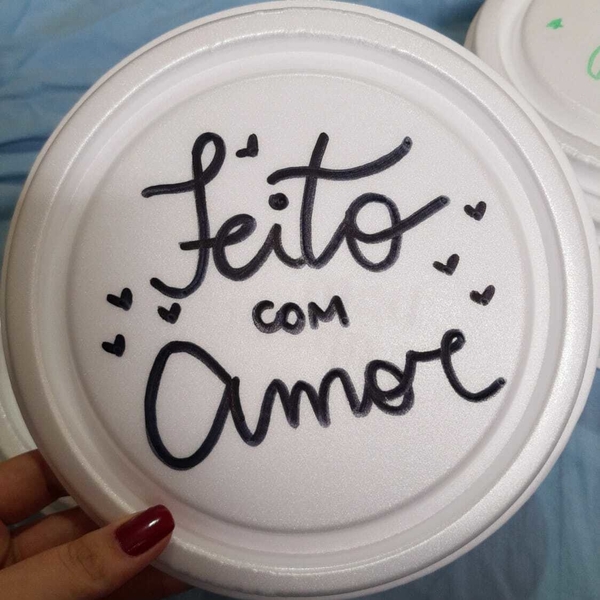 Feito
com
Amor